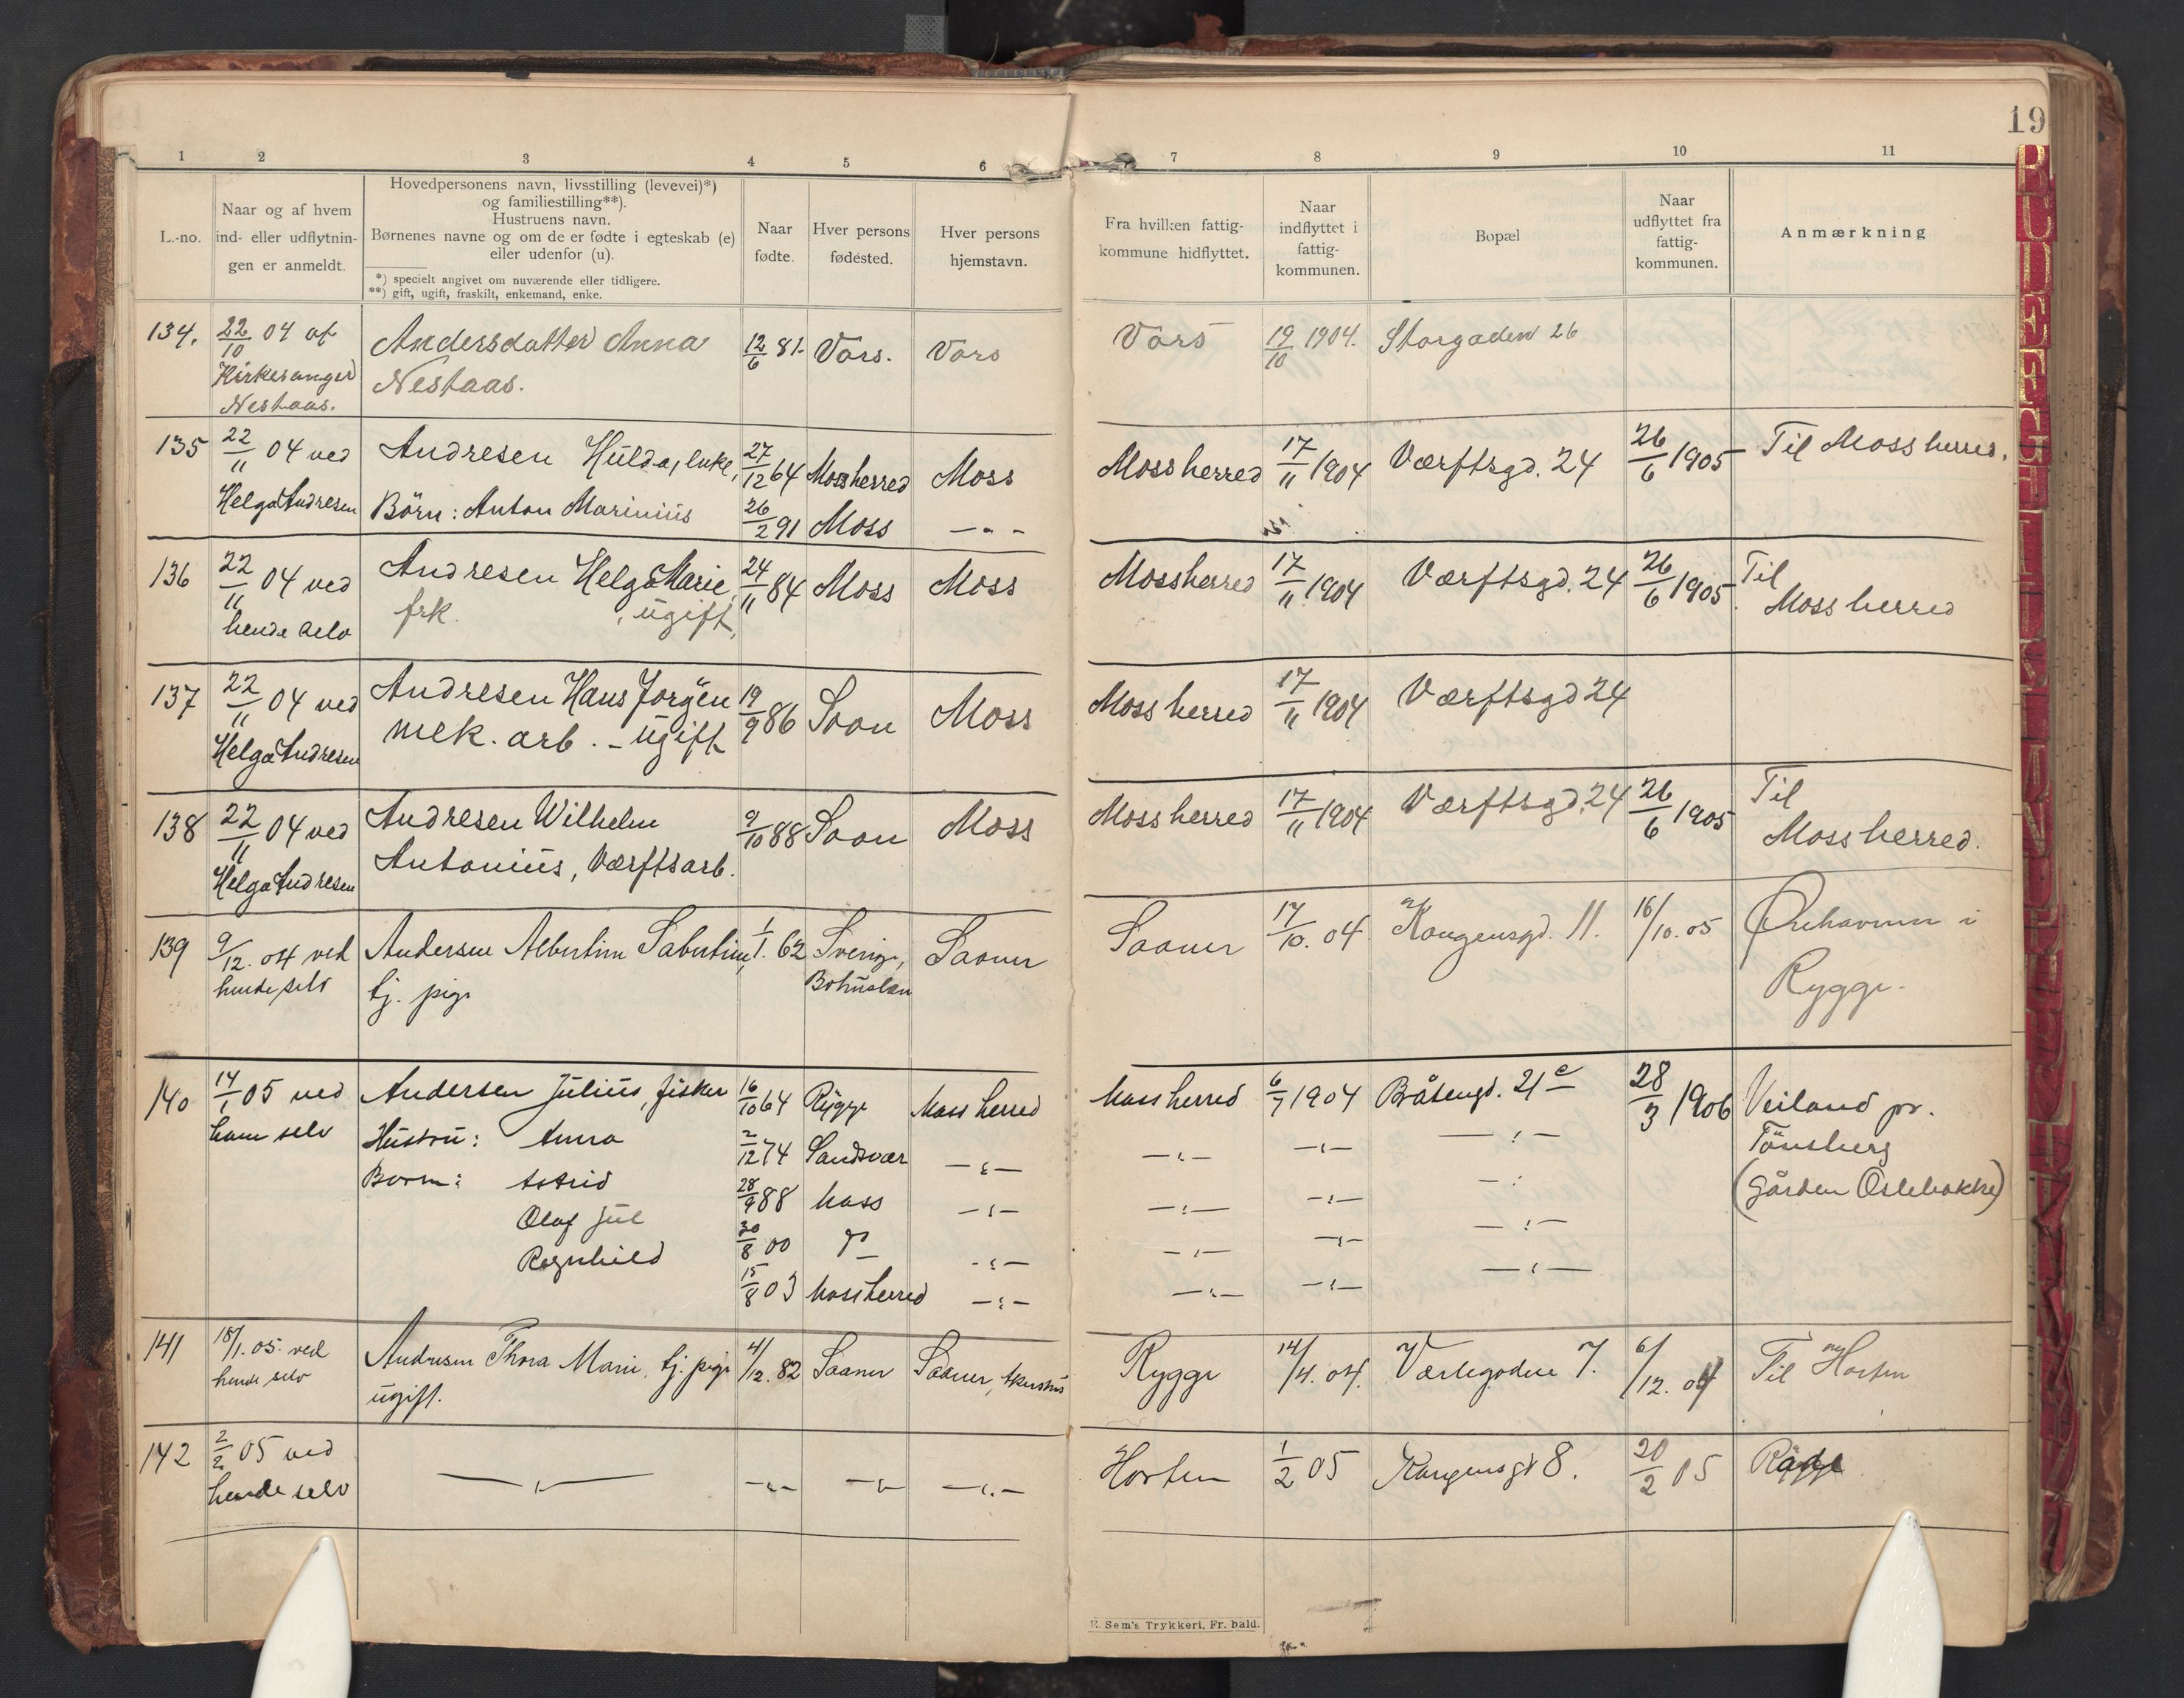 19
1 2 3 4 5 6 7 8 9 10 11
L.-no.
Naar og af hvem
ind- eller udflytnin-
gen er anmeldt.
Hovedpersonens navn, livsstilling (levevei)*)
og familiestilling**).
Hustruens navn.
Børnenes navne og om de er fødte i egteskab (e)
eller udenfor (u).
*) specielt angivet om nuværende eller tidligere.
**) gift, ugift, fraskilt, enkemand, enke.
Naar
fødte.
Hver persons
fødested.
Hver persons
hjemstavn.
Fra hvilken fattig-
kommune hidflyttet.
Naar
indflyttet i
fattig-
kommunen.
Bopæl
Naar
udflyttet fra
fattig-
kommunen.
Anmærkning
134. 22/10 04 af Andersdatter Anna 12/6 81. Vors. Vors Vors 19/10 1904. Storgaden 26
Kirkesanger Nestaas.
Nestaas.
135 22/11 04 ved Andresen Hulda, enke, 27/12 64 Mossherred Moss Mossherred 17/11 1904 Værftsgd. 24 26/6 1905 Til Mossherred.
Helga Andresen Börn: Anton Marinius 26/2 91 Moss — " —
136 22/11 04 ved Andresen Helga Marie, 24/11 84 Moss Moss Mossherred 17/11 1904 Værftsgd. 24 26/6 1905. Til
hende selv frk. , ugift, Mossherred
137 22/11 04 ved Andresen Hans Jorgen 19/9 86 Soon Moss Mossherred 17/11 1904 Værftsgd 24
Helga Andresen mek. arb. - ugift
138 22/11 04 ved Andresen Wilhelm 9/10 88 Soon Moss Mossherred 17/11 1904 Værftsgd. 24 26/6 1905 Til
Helga Andresen Antonius, Værftsarb. Mossherred.
139 9/12. 04 ved Andersen Albertine Sabertine, 1/1. 62 Sverige, Saaner Saaner 17/10. 04. Kongensgd. 11. 16/10. 05 Ørehavnen i
hende selv tj. pige Bohuslæn Rygge.
140 14/1 05 ved Andersen Julius, fisker 16/10 64 Rygge Mossherred Mossherred 6/7 1904 Bråtengd. 21 e 28/3 1906 Veiland pr.
ham selv Hustru: Anna 2/12 74 Sandsvær —"— —"— —"— —"— Tönsberg
Born: Astrid 28/9 88 Moss —"— —"— —"— —"— (gården Oslebakke)
Olaf Jul 30/8 00 do —"— —"— —"— —"—
Ragnhild 15/8 03 Mossherred —"— —"— —"— —"—
141 18/1. 05. ved Andresen Thora Marie, tj. pige 4/12. 82 Saaner Saaner, Akershus Rygge 14/4. 04. Værlegaden 7. 6/12. 04 Til Horten
hende selv ugift.
142 2/2 05 ved —"— —"— —"— —"— Horten 1/2 05 Kongensgd 8. 20/2 05
hende selv
E. Sem's Trykkeri, Fr. hald.